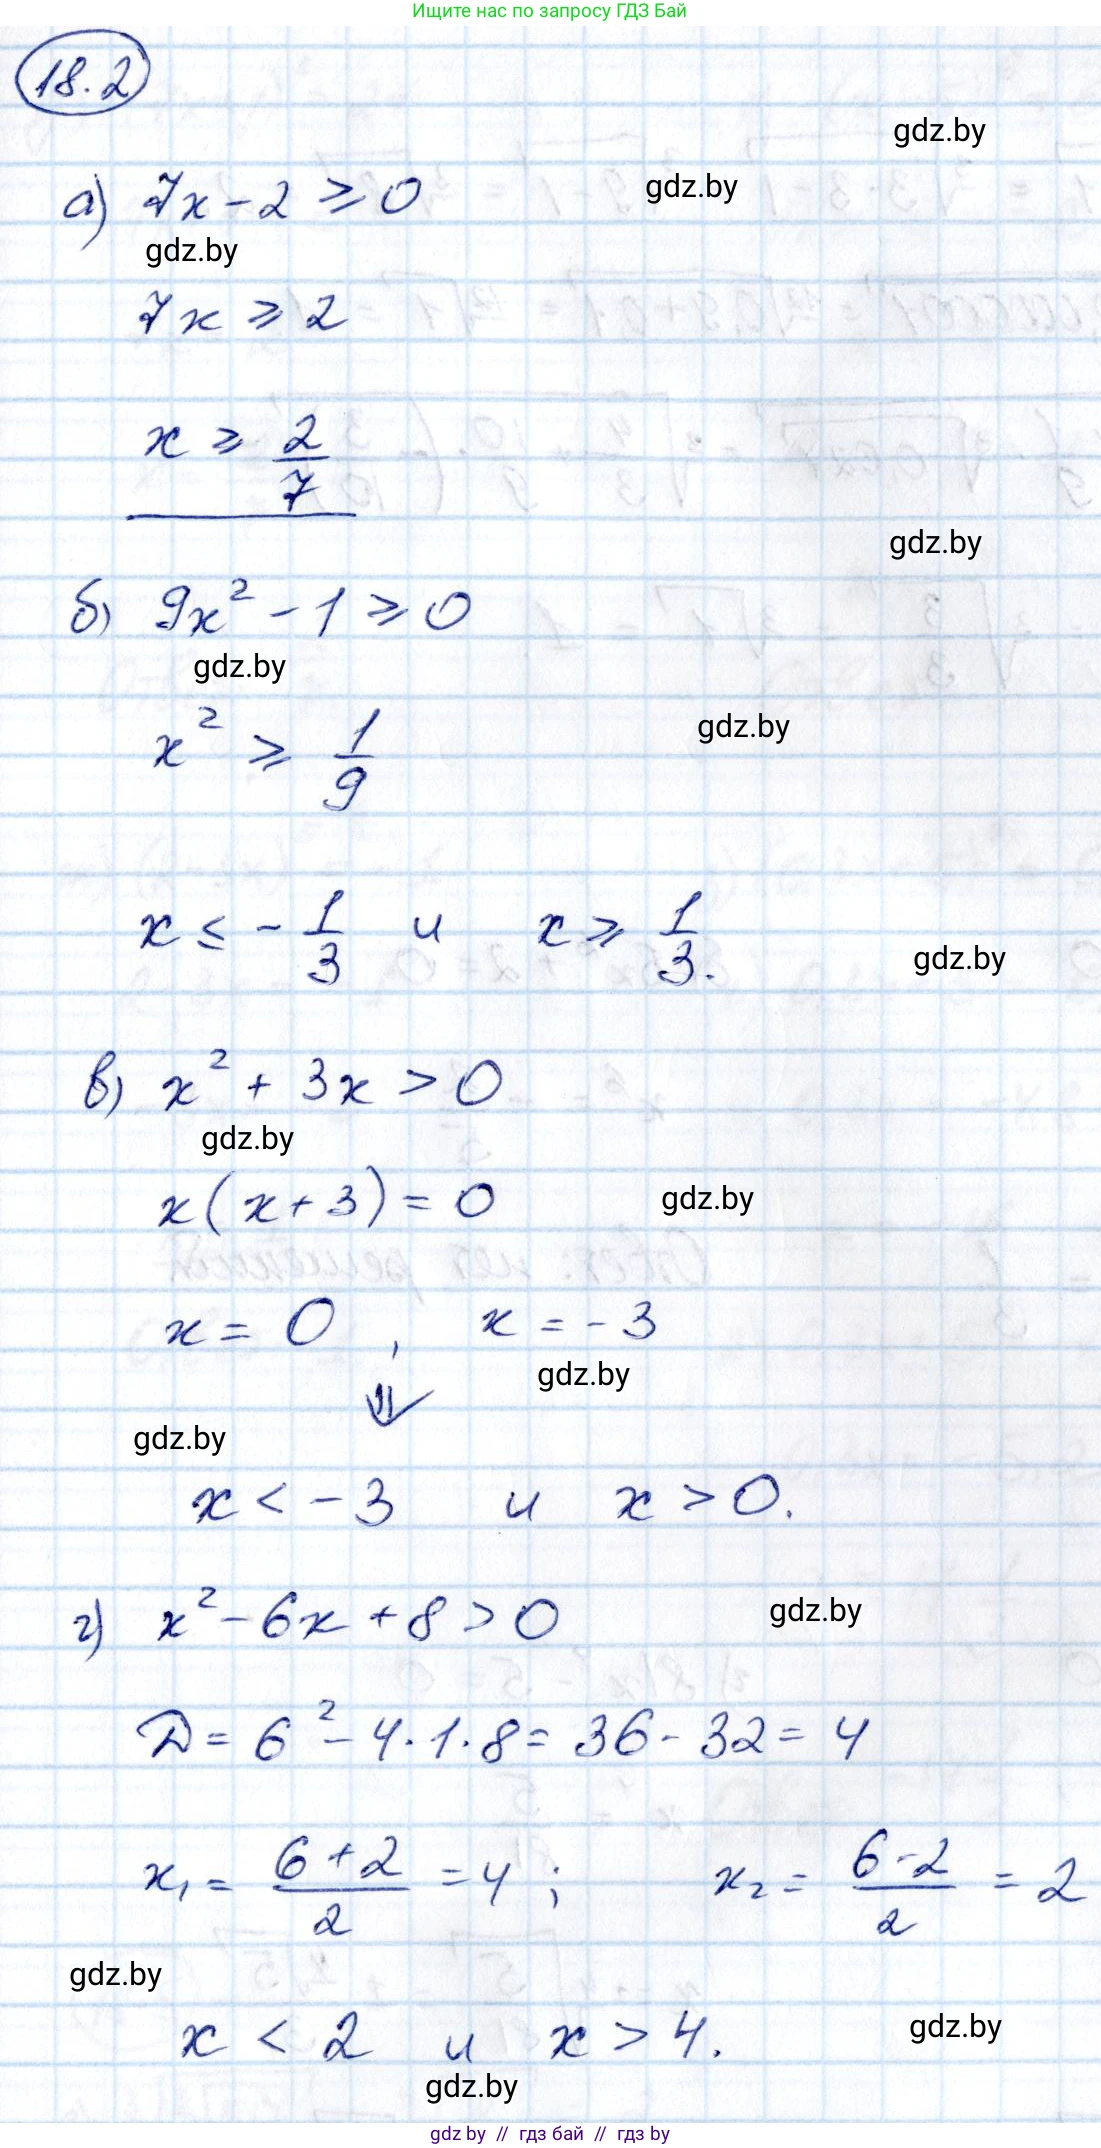 Ищите нас по запросу ГДЗ Бай
18.2
gdz.by
а) 7x - 2 ⩾ 0
gdz.by
gdz.by
7x ⩾ 2
x ⩾ 2/7
gdz.by
б) 9x² - 1 ⩾ 0
gdz.by
x² ⩾ 1/9
gdz.by
x ≤ - 1/3 и x ⩾ 1/3.
gdz.by
в) x² + 3x > 0
gdz.by
x(x+3) = 0
gdz.by
x = 0, x = -3
gdz.by
⇓
gdz.by
x < -3 и x > 0.
г) x² - 6x + 8 > 0
gdz.by
D = 6² - 4·1·8 = 36 - 32 = 4
x₁ = (6+2)/2 = 4; x₂ = (6-2)/2 = 2
gdz.by
x < 2 и x > 4.
gdz.by
gdz.by
gdz by // гдз бай // гдз by